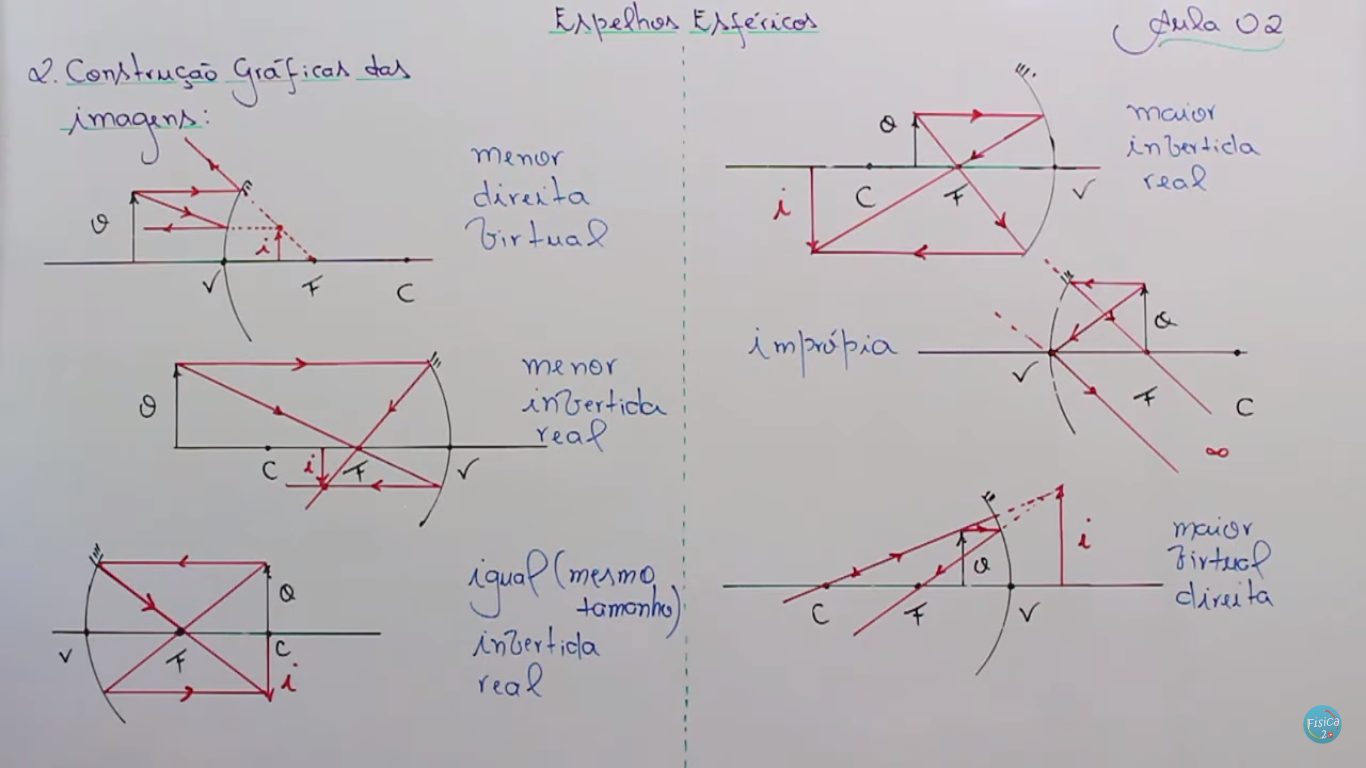 Espelhos Esféricos
Aula 02
2. Construção Gráficas das
imagens:
menor
direita
virtual
o
i
V
F
C
menor
invertida
real
o
C
i
F
V
igual (mesmo
tamanho)
invertida
real
o
V
F
C
i
maior
invertida
real
o
i
C
F
V
imprópia
o
V
F
C
∞
maior
virtual
direita
o
i
C
F
V
Física
2.0